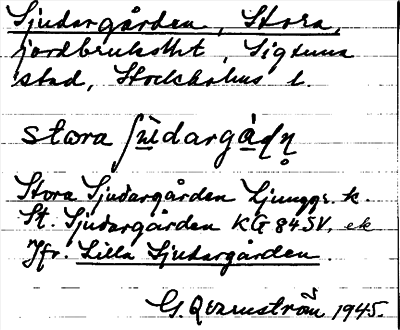 Sjudargården, Stora,
jordbruksfht, Sigtuna
stad, Stockholms l.
stora ʃu̲dargá̲ḍṇ
Stora Sjudargården Ljunggr. k.
St. Sjudargården KG 84 SV, ek
Jfr. Lilla Sjudargården.
G 1945.